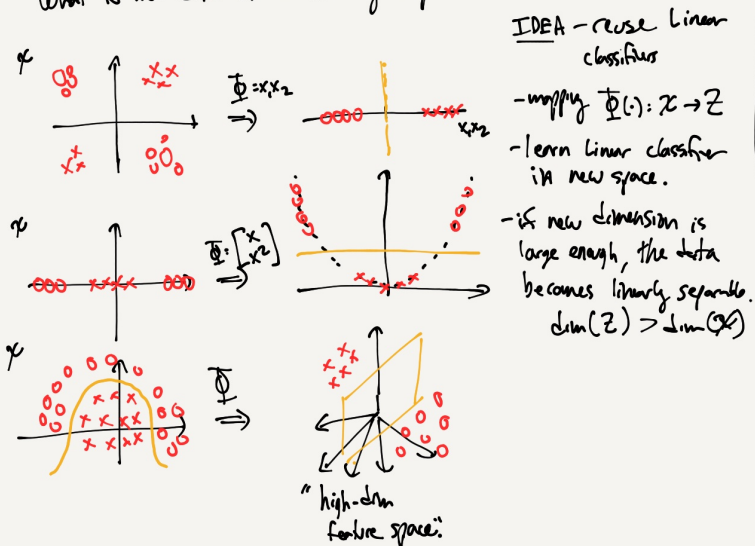 What is the
𝒳
Φ = x₁x₂
⇒
x₁x₂
𝒳
Φ: [x
x²]
⇒
𝒳
Φ
⇒
"high-dim
feature space."
IDEA - reuse Linear
classifiers
- mapping Φ(·): 𝒳 → Z
- learn linear classifier
in new space.
- if new dimension is
large enough, the data
becomes linearly separable.
dim(Z) > dim(𝒳)